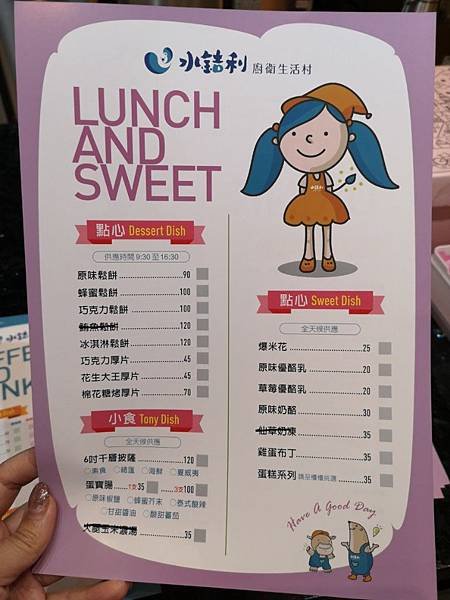 水喆利 廚衛生活村
LUNCH
AND
SWEET
點心 Dessert Dish
供應時間 9:30 至 16:30
原味鬆餅 90
蜂蜜鬆餅 100
巧克力鬆餅 100
鮪魚鬆餅 120
冰淇淋鬆餅 120
巧克力厚片 45
花生大王厚片 45
棉花糖烤厚片 70
小食 Tony Dish
全天候供應
6吋千層披薩 120
○素食 ○總匯 ○海鮮 ○夏威夷
蛋寶腸 1支35 3支100
○原味椒鹽 ○蜂蜜芥末 ○泰式酸辣
○甘甜醬油 ○酸甜蕃茄
火腿玉米濃湯 35
點心 Sweet Dish
全天候供應
爆米花 25
原味優酪乳 20
草莓優酪乳 20
原味奶酪 30
仙草奶凍 35
雞蛋布丁 35
蛋糕系列 請至櫃檯挑選 35
Have A Good Day